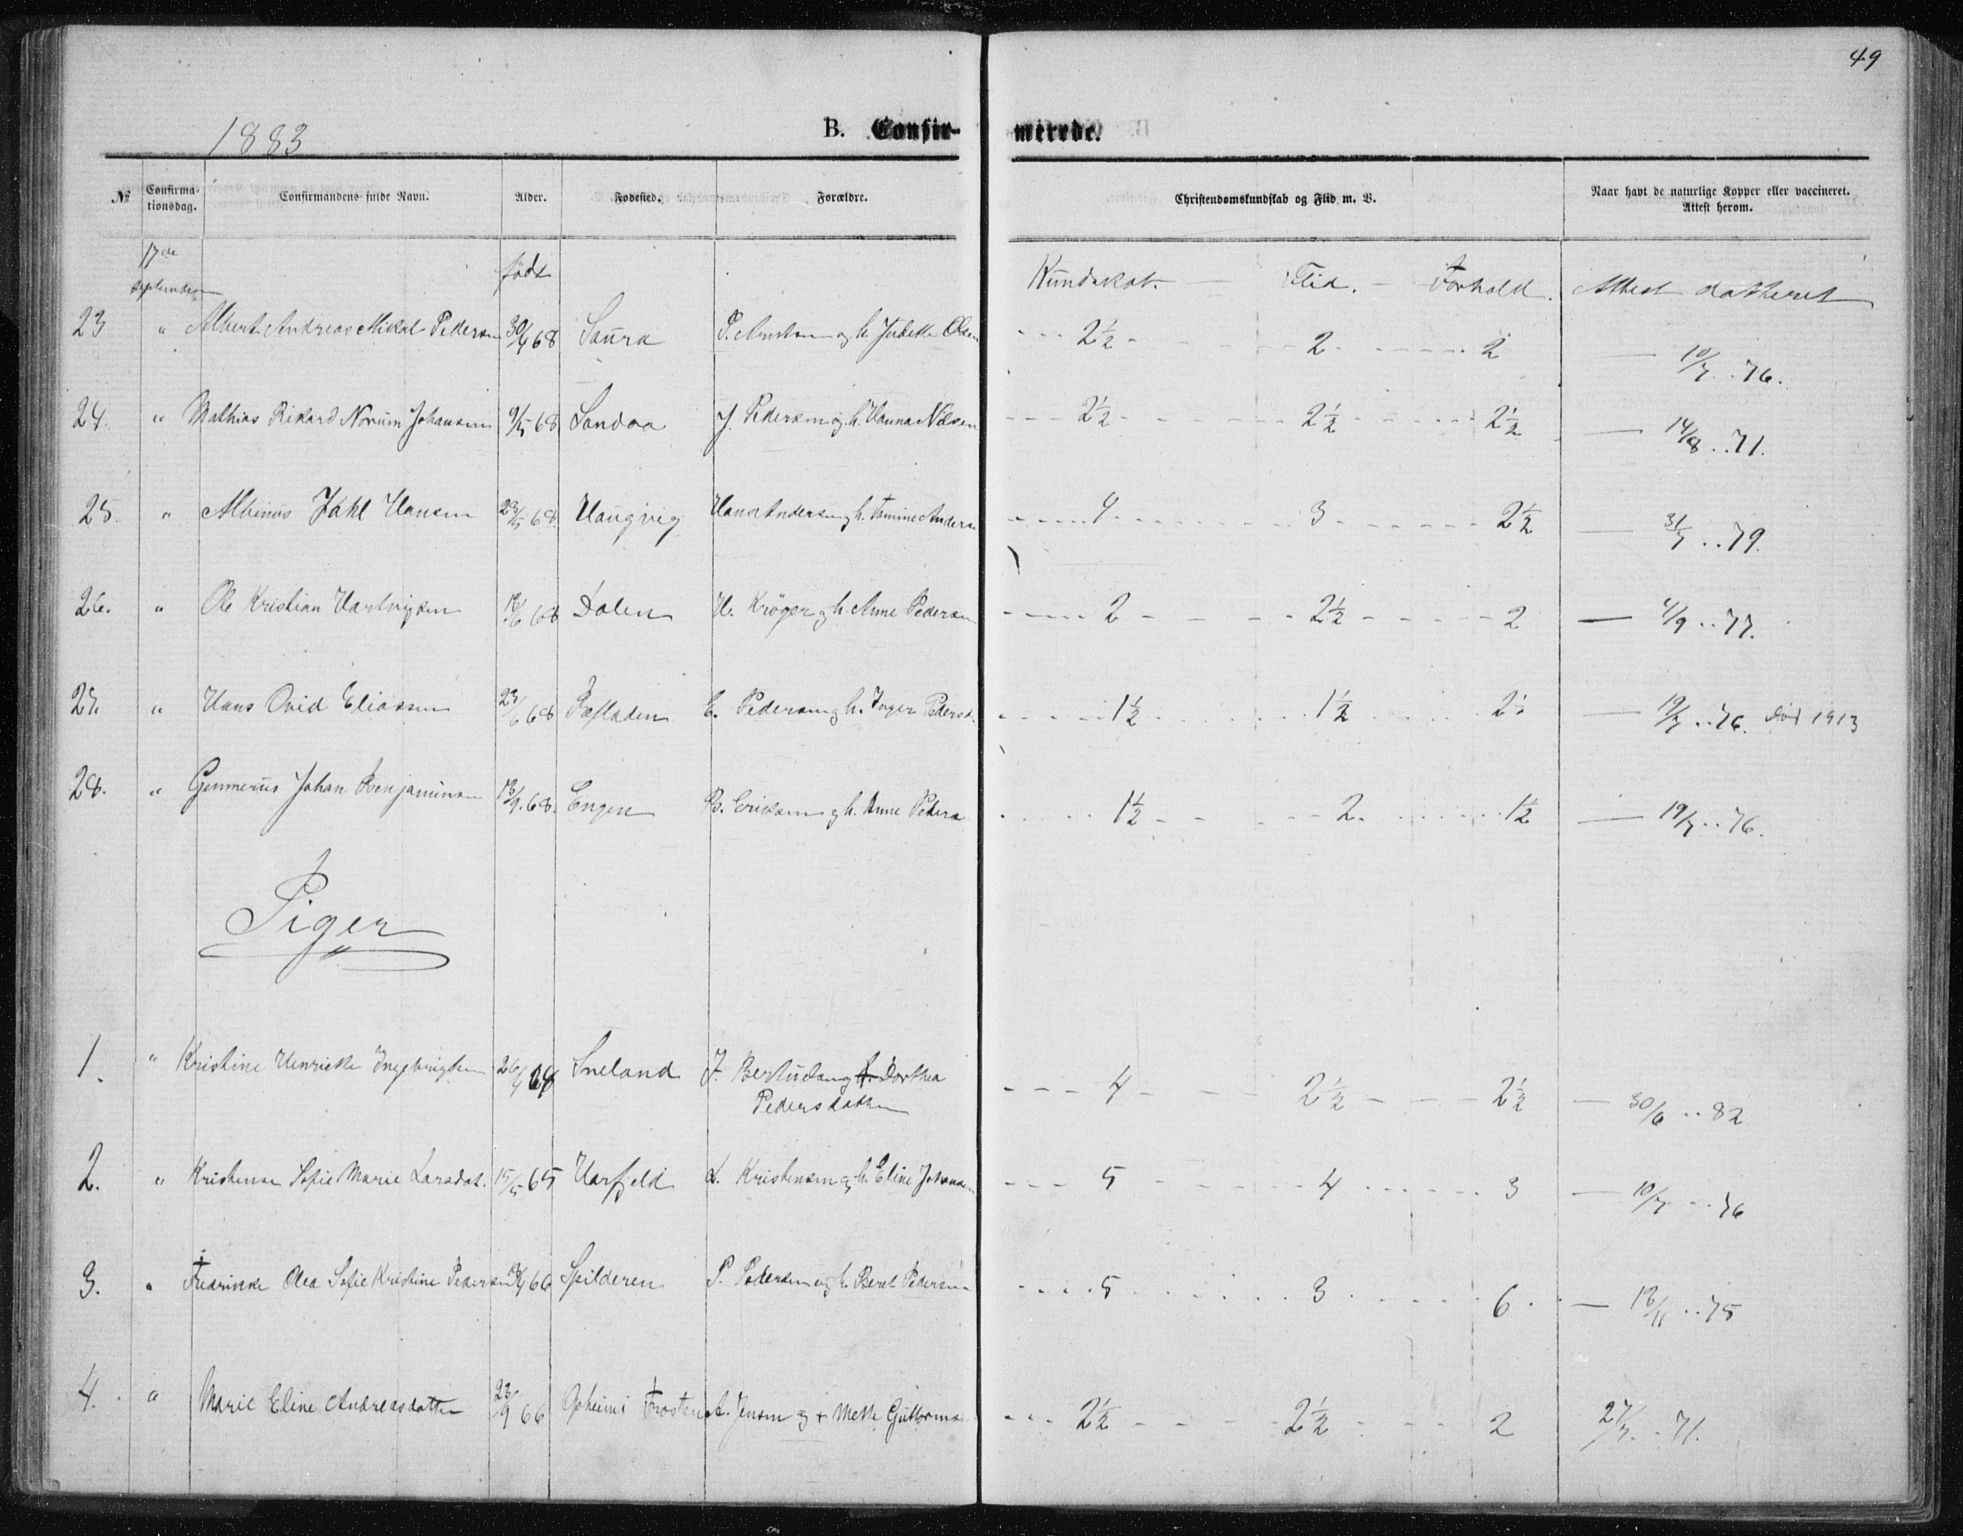 49
1883
B. Confir- merede.
№ Confirma-tionsdag. Confirmandens fulde Navn. Alder. Fødested. Forældre. Christendomskundskab og Flid m. V. Naar havt de naturlige Kopper eller vaccineret. Attest herom.
17de september født Kundskab. — Flid. — Forhold. Attest datteret
23 " Albert Andreas Mickal Pedersen 30/4 68 Saura P. og h. Olsen 2½ 2 2 — 10/7 76.
24. " Mathias Rikard Norum Johansen 9/5 68 Sandaa J. Pedersen og h. Hanna Nilsen 2½ 2½ 2½ — 14/8 71.
25. " Albinus Dahl Hansen 23/5 68. Haugvig Hans Andersen og h. Andersen 4 3 2½ — 31/7 79.
26. " Ole Kristian Hartvigsen 68 Dalen H. Krøger og h. Anne Pedersen 2 2½ 2 — 4/9 77.
27. " Hans Ovid Eliassen 23/6 68 E. Pedersen og h. Inger Pedersd. 1½ 1½ 2 — 19/7 76. død 1913
28. " Gunnerius Johan Benjaminsen 13/9. 68. Engen B. Eriksen og h. Anne Peders 1½ 2. 1½ — 19/7 76.
Piger
1. " Kristine Henrikke Ingebrigtsen 26/4 64 Sneland I. og Dorthea 4 2½ 2½ — 30/6 82
Pedersdatter
2. " Sofie Marie Larsdat. 15/5 65 Harfjeld L. Kristensen og h. Eline Johansen 5 4 3 — 10/7 76
3. " Fredrikke Olea Sofie Kristine Pedersen 66 Spilderen P. Pedersen og h. Beret Pedersen 5 3 6. — 75
4. " Marie Eline Andreasdatter 23/9 66 A. Jensen og + Mette Guttorms 2½ 2½ 2 27/7 71.